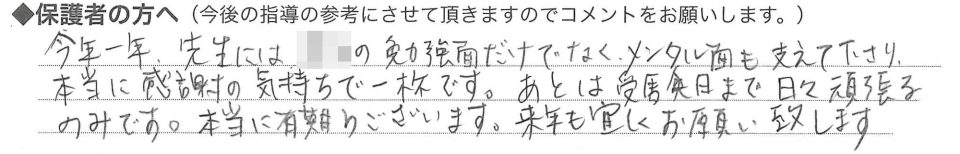 ◆保護者の方へ（今後の指導の参考にさせて頂きますのでコメントをお願いします。）
今年一年、先生には の勉強面だけでなく、メンタル面も支えて下さり、
本当に感謝の気持ちで一杯です。あとは受験日まで日々頑張る
のみです。本当に有難うございます。来年も宜しくお願い致します